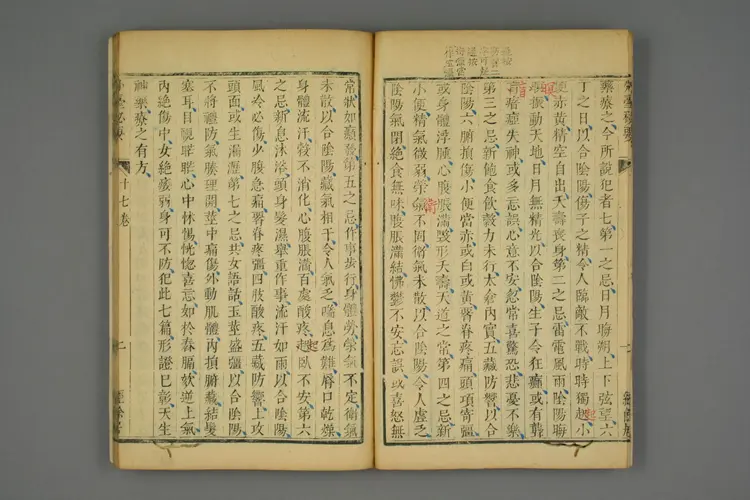 藥療之今所說犯者七第一之忌日月晦朔上下弦望六
丁之日以合陰陽傷子之精令人臨敵不戰時時獨起小
便赤黃精空自出夭壽喪身第二之忌雷電風雨陰陽晦
振動天地日月無精光以合陰陽生子令狂癲或有聾
瘖瘂失神或多忘誤心意不安忽常喜驚恐悲憂不樂
第三之忌新飽食飲穀力未行太倉內實五藏防響以合
陰陽六腑損傷小便當赤或白或黃腰脊疼痛頭項寄彊
或身體浮腫心腹脹滿毀形夭壽天道之常第四之忌新
小便精氣微弱榮氣不固衛氣未散以合陰陽令人虛乏
陰陽氣閉絕食無味腹脹滿結怫鬱不安忘誤或喜怒無
常狀如癲發第五之忌作事步行身體勞榮氣不定衛氣
未散以合陰陽藏氣相干令人氣乏喘息為難唇口乾燥
身體流汗穀不消化心腹脹滿百處酸疼起臥不安第六
之忌新息沐浴頭身髮濕舉重作事流汗如雨以合陰陽
風冷必傷少腹急痛腰脊疼彊四肢酸疼五藏防響上攻
頭面或生漏瀝第七之忌共女語話玉莖盛彊以合陰陽
不將禮防氣腠理開莖中痛傷外動肌體內損腑藏結髮
塞耳目視䀮䀮心中怵惕恍惚喜忘如杵舂膈欬逆上氣
內絕傷中女絕痿弱身可不防犯此七篇形證已彰天生
神藥療之有方
十七卷
二